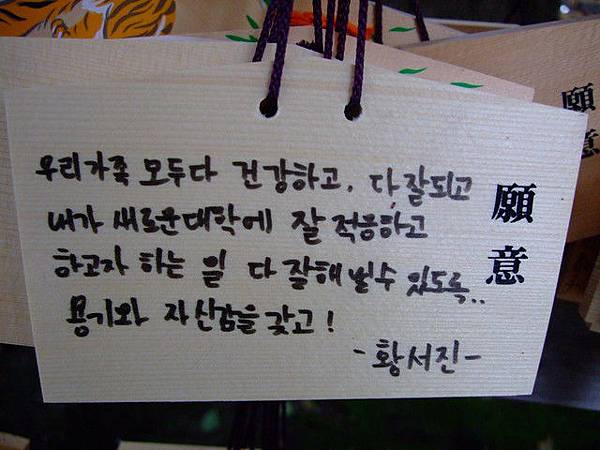 우리가족 모두다 건강하고, 다 잘되고
내가 새로운대학에 잘 적응하고
하고자 하는 일 다 잘해 낼수 있도록..
용기와 자신감을 갖고!
-황서진-
願意
願意